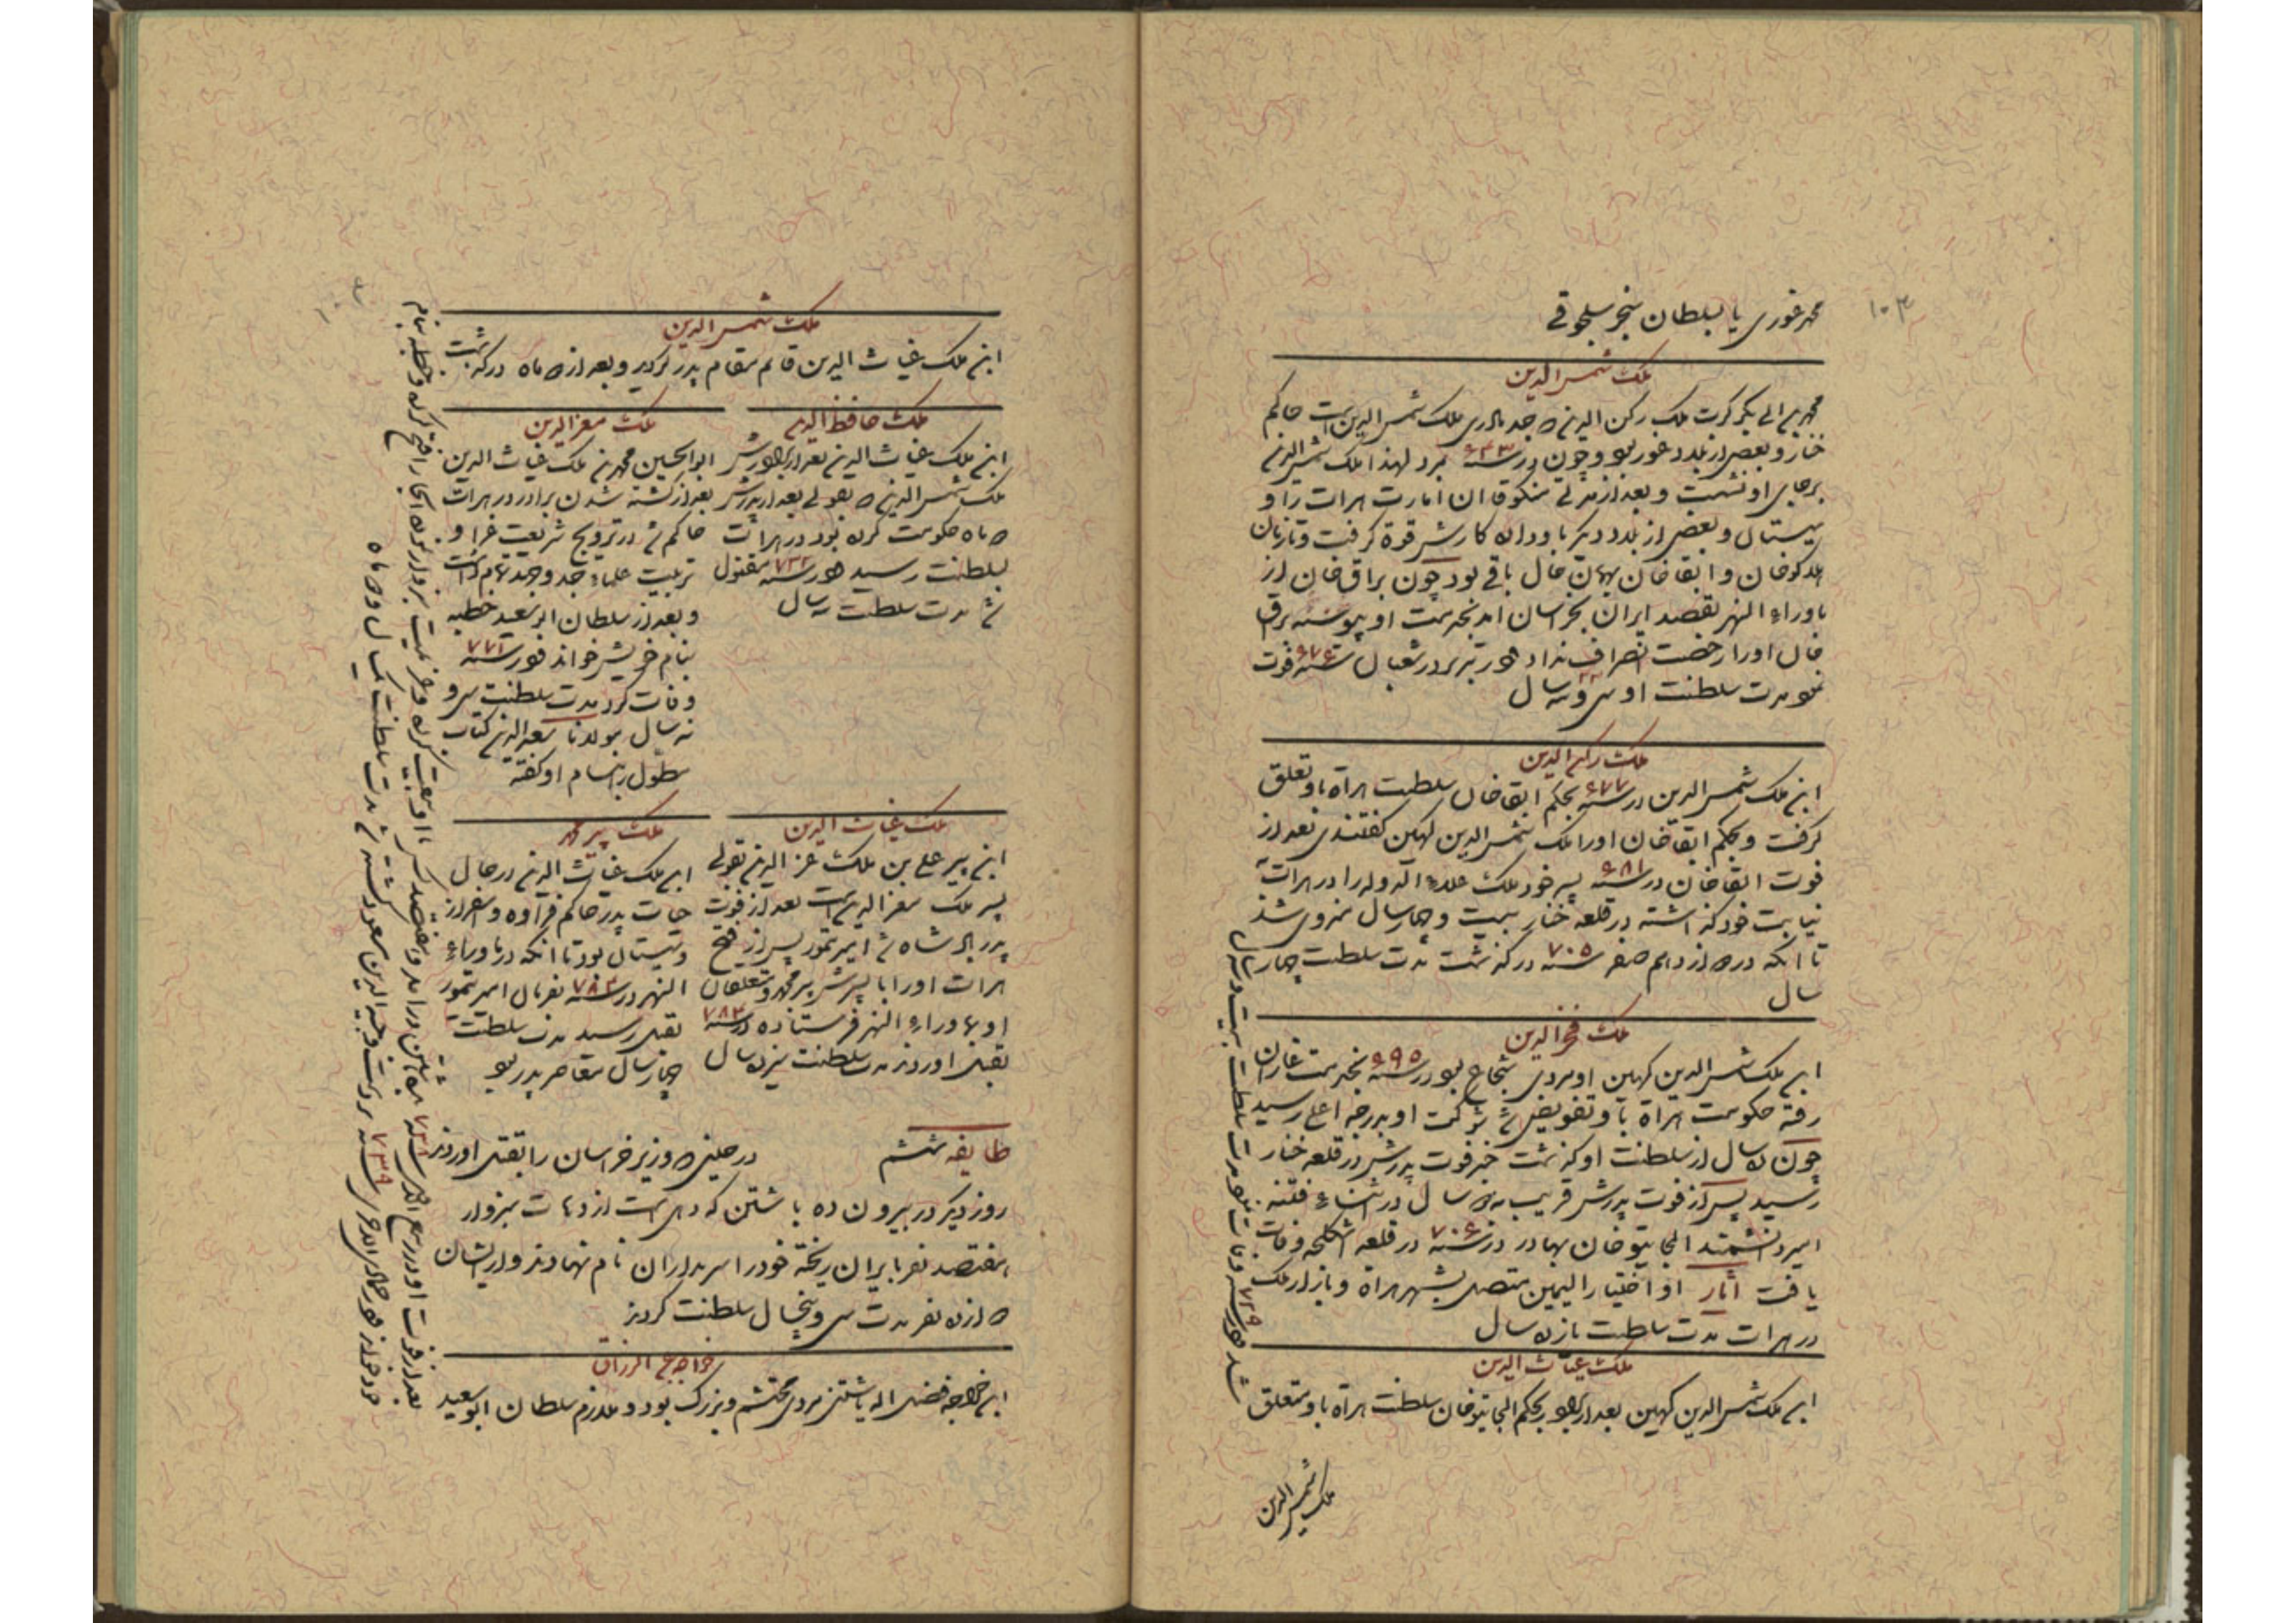 ۱۰۳
محمد غوری یا بسلطان سنجر سلجوقی
ملک شمس الدین
محمد بن ابی بکر کرت ملک رکن الدین که جد مادری ملک شمس الدین است حاکم
خنار و بعضی از بلاد غور بود و چون در سنه ۶۴۳ بمرد لهذا ملک شمس الدین
بر جای او نشست و بعد از مدتی منکوقاآن امارت هرات را و
سیستان و بعضی از بلاد دیگر باو داده کارش قوة گرفت و تا زمان
هلاکوخان و ابقاخان بهمان حال باقی بود چون براق خان از
ماوراء النهر بقصد ایران بخراسان آمد بخدمت او پیوسته براق
خان او را رخصت انصراف نداد در تبریز در شعبان سنه ۶۷۶ فوت
نمود مدت سلطنت او سی و سه سال
ملک رکن الدین
ابن ملک شمس الدین در سنه ۶۷۷ بحکم ابقاخان سلطنت هراة باو تعلق
گرفت و بحکم ابقاخان او را ملک شمس الدین کهین گفتندی بعد از
فوت ابقاخان در سنه ۶۸۱ پسر خود ملک علاء الدوله را در هرات
نیابت خود گذاشته در قلعه خنار بیست و چهار سال منزوی شد
تا آنکه در دوازدهم صفر سنه ۷۰۵ درگذشت مدت سلطنت چهار
سال
ملک فخرالدین
ابن ملک شمس الدین کهین او مردی شجاع بود در سنه ۶۹۵ بخدمت غازان
رفته حکومت هراة باو تفویض شد شوکت او بدرجه اعلی رسید
چون ده سال از سلطنت او گذشت خبر فوت پدرش در قلعه خنار
رسید پس از فوت پدرش قریب به سال در اثناء فتنه
امیر دانشمند الجایتو خان بهادر در سنه ۷۰۶ در قلعه اشکلجه وفات
یافت آثار او اختیار الیمین متصل بشهر هراة و بازار ملک
در هرات مدت سلطنت یازده سال
ملک غیاث الدین
ابن ملک شمس الدین کهین بعد از برادر بحکم الجایتو خان سلطنت هراة باو متعلق
شد در سنه ۷۲۹ وفات نمود مدت سلطنت بیست و سه سال
ملک شمس الدین
ملک شمس الدین
ابن ملک غیاث الدین قائم مقام پدر گردید و بعد از ده ماه درگذشت
ملک حافظ الدین
ابن ملک غیاث الدین بعد از برادرش
ملک شمس الدین که بقولی بعد از پدرش
ده ماه حکومت کرده بود در هرات
بسلطنت رسید در سنه ۷۳۲ مقتول
شد مدت سلطنت سه سال
ملک معزالدین
ابوالحسین محمد بن ملک غیاث الدین
بعد از کشته شدن برادر در هرات
حاکم شد در ترویج شریعت غرا و
تربیت علماء جد و جهد تمام داشت
و بعد از سلطان ابوسعید خطبه
بنام خویش خواند در سنه ۷۷۱
وفات کرد مدت سلطنت سی و
نه سال مولانا سعد الدین کتاب
مطول را بنام او گفته
ملک غیاث الدین
ابن پیر علی بن ملک عز الدین بقولی
پسر ملک معز الدین است بعد از فوت
پدر پادشاه شد امیر تیمور پس از فتح
هرات او را با پسرش پیر محمد و متعلقان
او بماوراء النهر فرستاده در سنه ۷۸۳
بقتل آوردند مدت سلطنت سیزده سال
ملک پیر محمد
ابن ملک غیاث الدین در حال
حیات پدر حاکم فراوه و اسفراز
و سیستان بود تا آنکه در ماوراء
النهر در سنه ۷۸۳ بفرمان امیر تیمور
بقتل رسید مدت سلطنت
چهار سال معاصر پدر بود
طایفه ششم
در حینی که وزیر خراسان را بقتل آوردند
روز دیگر در بیرون ده باشتین که دهی است از دهات سبزوار
هفتصد نفر بایران ریخته خود را سربداران نام نهادند و از ایشان
دوازده نفر مدت سی و پنجسال سلطنت کردند
خواجه عبد الرزاق
ابن خواجه فضل الله باشتینی مردی محتشم و بزرگ بود و ملازم سلطان ابوسعید